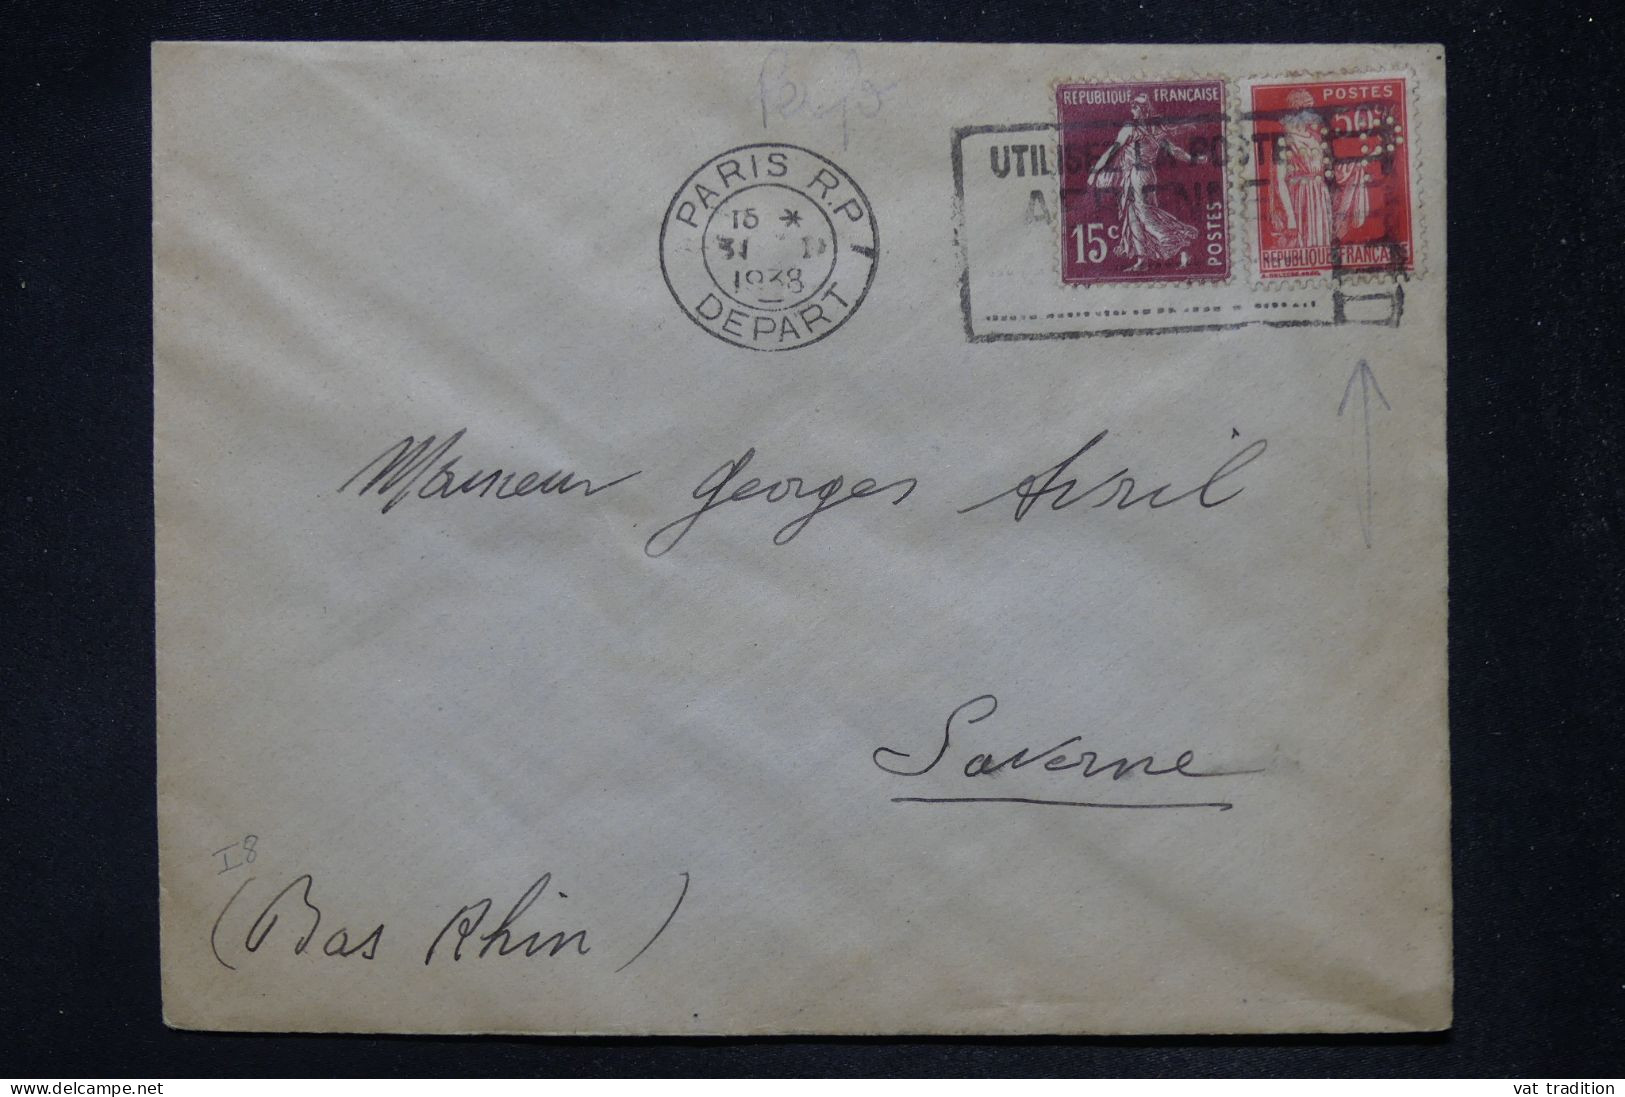 PARIS R.P.
1938
DEPART
UTILISEZ LA POSTE
REPUBLIQUE FRANÇAISE
15c
POSTES
POSTES
50c
REPUBLIQUE FRANÇAISE
Monsieur Georges Avril
Saverne
I8
(Bas Rhin)
delcampe.net
vat tradition